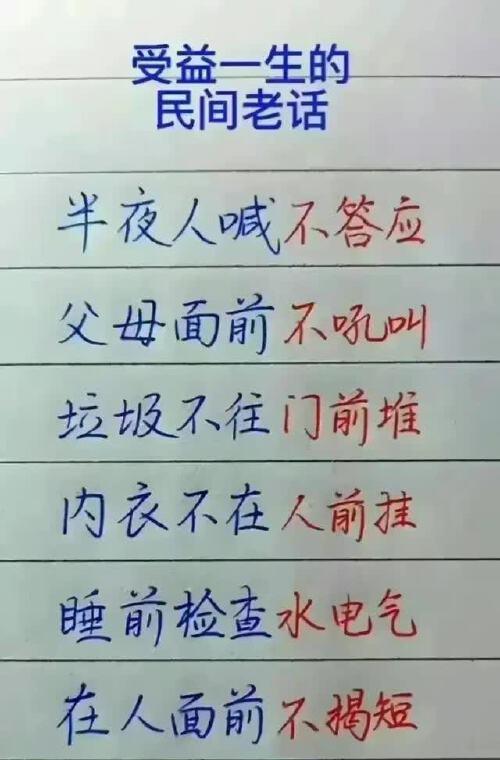 受益一生的
民间老话
半夜人喊不答应
父母面前不吼叫
垃圾不往门前堆
内衣不在人前挂
睡前检查水电气
在人面前不揭短